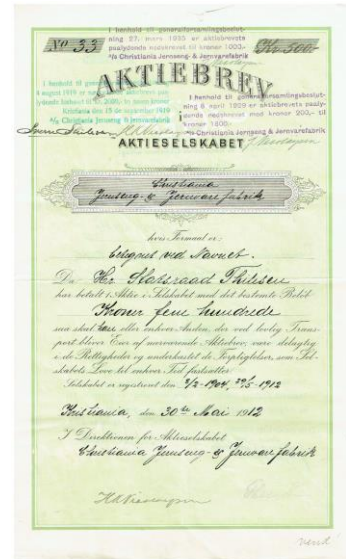 No 33
Kr. 500.-
I henhold til generalforsamlingsbeslut-
ning 27. mars 1935 er aktiebrevets
paalydende nedskrevet til kroner 1000,-
A/s Christiania Jernseng & Jernvarefabrik
AKTIEBREV
I henhold til
4 august 1919 er
Kristiania den 15 de november 1919
A/s Christiania Jernseng & Jernvarefabrik
I henhold til generalforsamlingsbeslut-
ning 8 april 1929 er aktiebrevets paaly-
dende nedskrevet med kroner 200,- til
kroner 1800,-
A/s Christiania Jernseng & Jernvarefabrik
i
AKTIESELSKABET
Christiania
Jernseng- & Jernvarefabrik
hvis Formaal er:
betegnet ved Navnet.
Da Hr. Statsraad
har betalt i Aktie i Selskabet med det bestemte Beløb
Kroner fem hundrede
saa skal han eller enhver Anden, der ved lovlig Trans-
port bliver Eier af nærværende Aktiebrev, være delagtig
i de Rettigheder og underkastet de Forpligtelser, som Sel-
skabets Love til enhver Tid fastsætter.
Selskabet er registreret den 1904, 1912
Kristiania, den 30te Mai 1912
I Direktionen for Aktieselskabet
Christiania Jernseng- & Jernvarefabrik
vend!